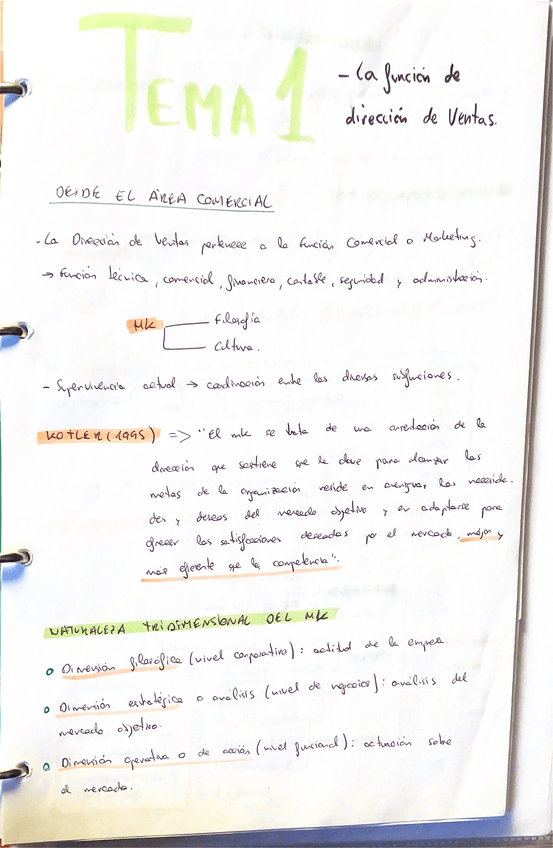 TEMA 1
- La función de
dirección de Ventas.
DESDE EL ÁREA COMERCIAL
- La Dirección de Ventas pertenece a la función Comercial o Marketing.
→ Función técnica, comercial, financiera, contable, seguridad y administración.
MK
Filosofía
Cultura.
- Supervivencia actual → coordinación entre las diversas subfunciones.
KOTLER (1995) => "El mk se trata de una orientación de la
dirección que sostiene que la clave para alcanzar las
metas de la organización reside en averiguar las necesida-
des y deseos del mercado objetivo y en adaptarse para
ofrecer las satisfacciones deseadas por el mercado, mejor y
más eficiente que la competencia".
NATURALEZA TRIDIMENSIONAL DEL MK
o Dimensión filosófica (nivel corporativo): actitud de la empresa.
o Dimensión estratégica o análisis (nivel de negocios): análisis del
mercado objetivo.
o Dimensión operativa o de acción (nivel funcional): actuación sobre
el mercado.